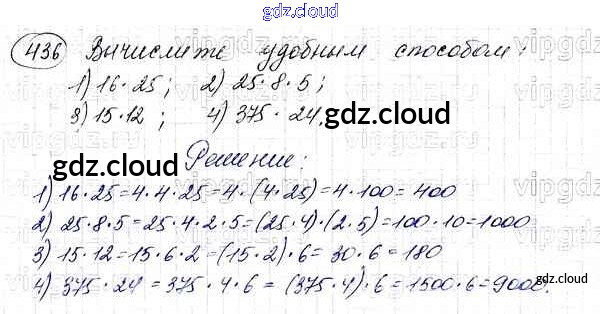 gdz.cloud
436 Вычислите удобным способом:
1) 16·25; 2) 25·8·5;
3) 15·12; 4) 375·24.
gdz.cloud
gdz.cloud
Решение:
1) 16·25=4·4·25=4·(4·25)=4·100=400
2) 25·8·5=25·4·2·5=(25·4)·(2·5)=100·10=1000.
3) 15·12=15·6·2=(15·2)·6=30·6=180
4) 375·24=375·4·6=(375·4)·6=1500·6=9000.
gdz.cloud